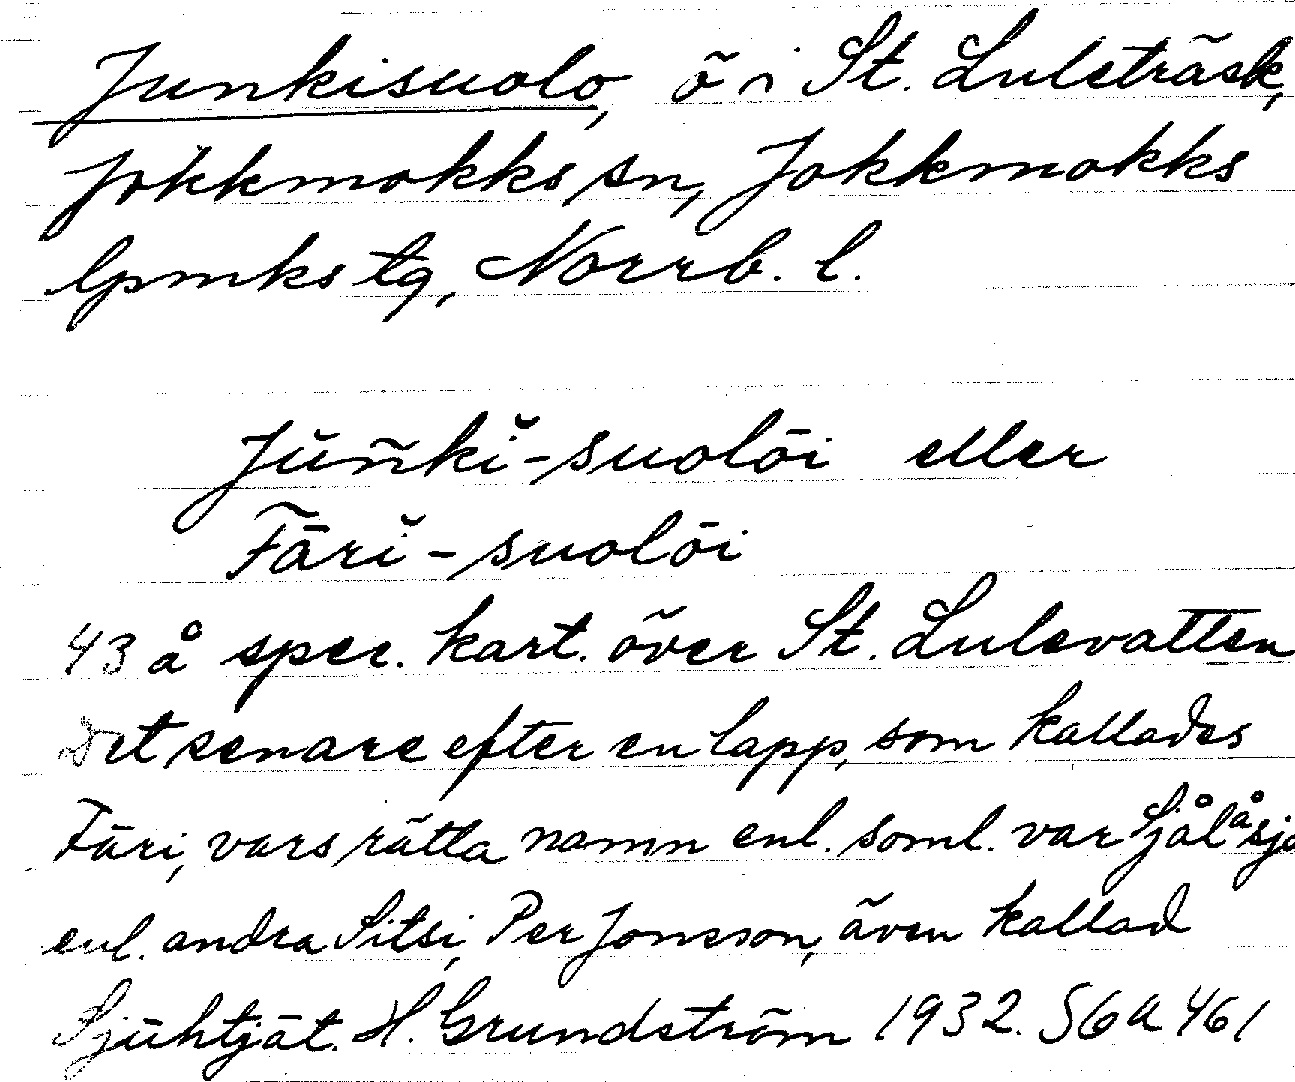 Junkisuolo, ö i St. Luleträsk,
Jokkmokks sn, Jokkmokks
lpmks tg, Norrb. l.
Jŭñkĭ-suolōi eller
Fārĭ-suolōi
43 å spec. kart. över St. Lulevatten
Det senare efter en lapp, som kallades
Färi, vars rätta namn enl. soml. var Sjålåsjo
enl. andra Sitsi, Per Jonsson, även kallad
Sjühtjät. H. Grundström 1932. S6a 461